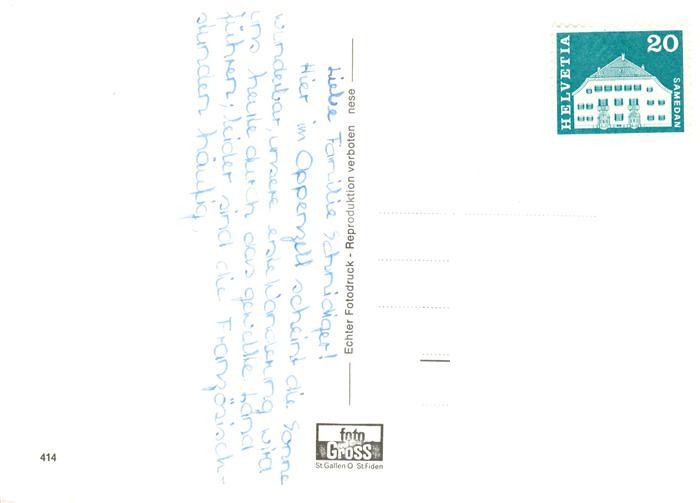 Liebe Familie Schnidiger!
Hier im Appenzell scheint die Sonne
wunderbar, unsere erste Wanderung wird
uns heute durch das gewellte Land
führen; leider sind die Französisch-
stunden häufig.
Echter Fotodruck - Reproduktion verboten nese
HELVETIA
20
SAMEDAN
foto
GROSS
St.Gallen O St.Fiden
414